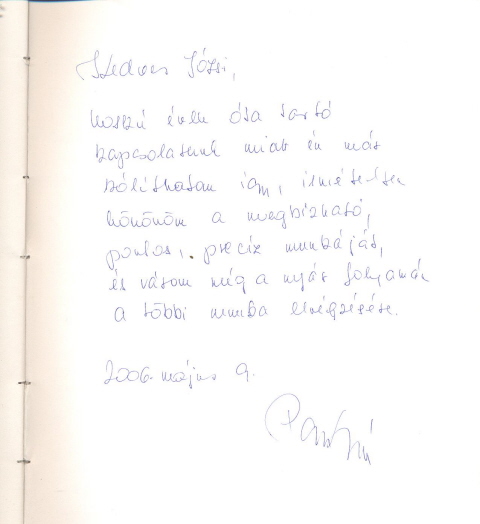 Kedves Józsi,
hosszú évek óta tartó
kapcsolatunk miatt én már
szólíthatom így, ismételten
köszönöm a megbízható,
pontos, precíz munkáját,
és várom még a nyár folyamán
a többi munka elvégzését.
2006. május 9.